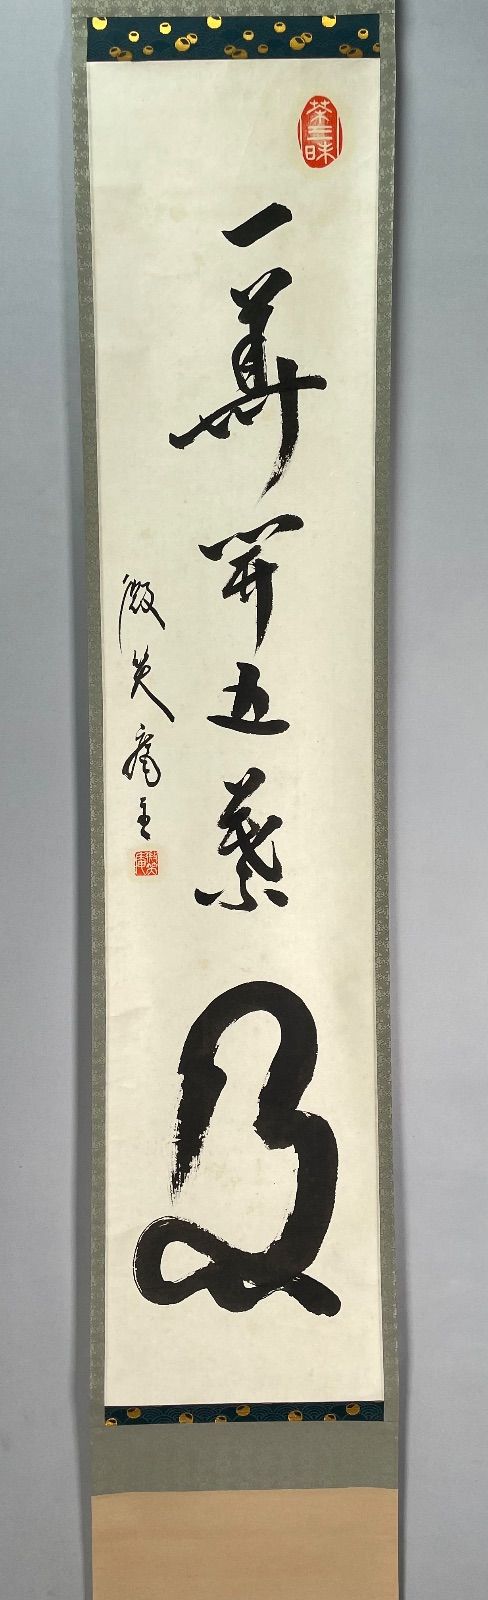 茶三昧
一華開五葉
微笑庵主